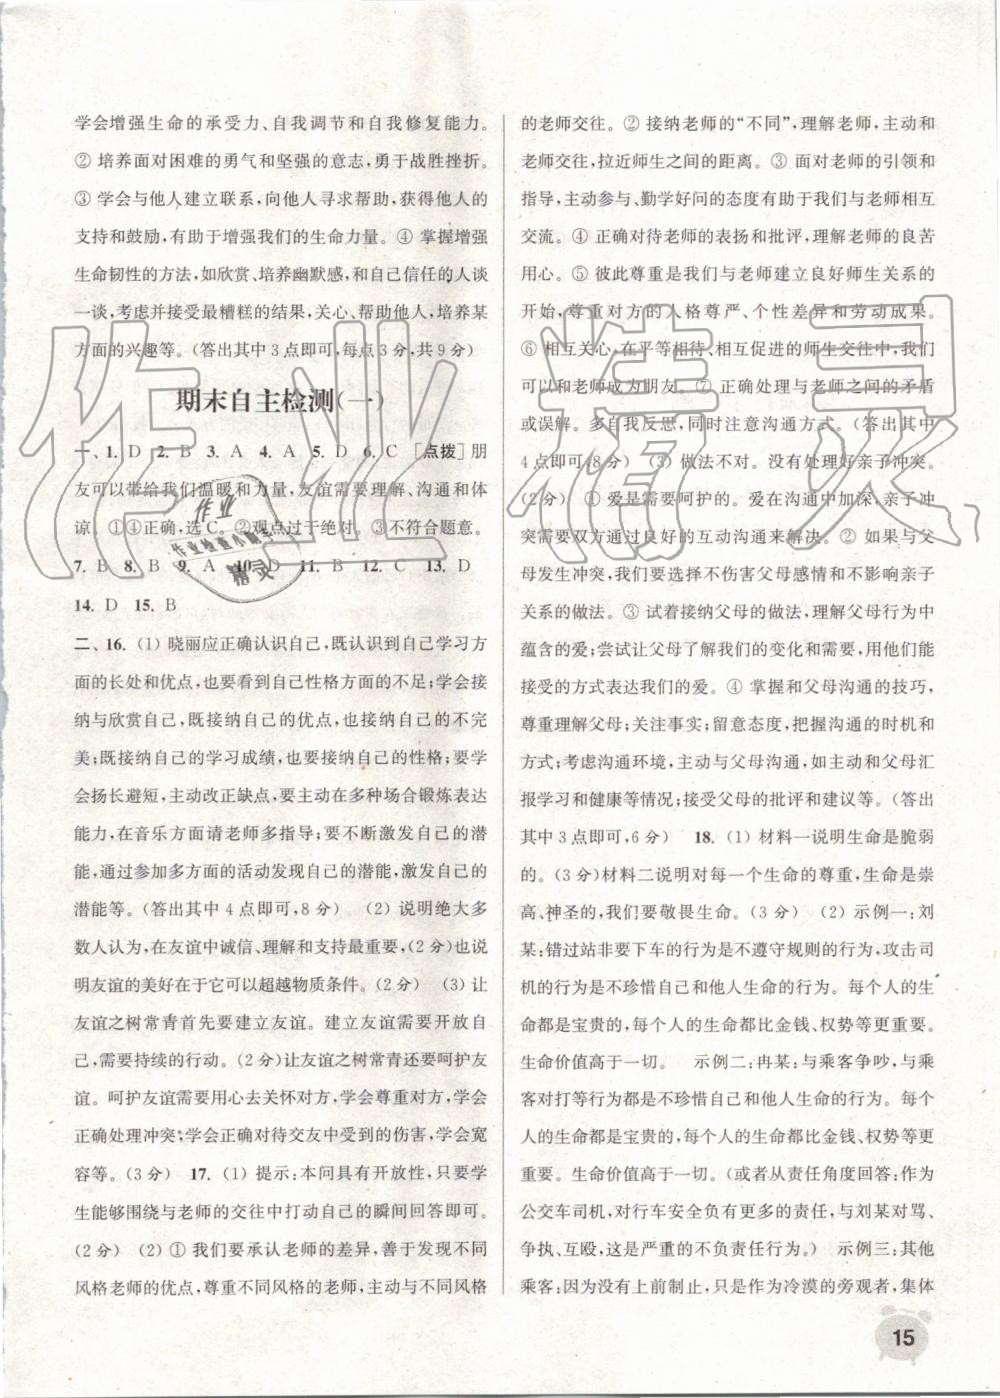 学会增强生命的承受力、自我调节和自我修复能力。
② 培养面对困难的勇气和坚强的意志,勇于战胜挫折。
③ 学会与他人建立联系,向他人寻求帮助,获得他人的
支持和鼓励,有助于增强我们的生命力量。④ 掌握增强
生命韧性的方法,如欣赏、培养幽默感,和自己信任的人谈
一谈,考虑并接受最糟糕的结果,关心、帮助他人,培养某
方面的兴趣等。(答出其中3点即可,每点3分,共9分)
期末自主检测(一)
一、1. D 2. B 3. A 4. A 5. D 6. C [点拨]朋
友可以带给我们温暖和力量,友谊需要理解、沟通和体
谅。①④正确,选C。②观点过于绝对。③不符合题意。
7. B 8. B 9. A 10. D 11. B 12. C 13. D
14. D 15. B
二、16. (1) 晓丽应正确认识自己,既认识到自己学习方
面的长处和优点,也要看到自己性格方面的不足;学会接
纳与欣赏自己,既接纳自己的优点,也接纳自己的不完
美;既接纳自己的学习成绩,也要接纳自己的性格;要学
会扬长避短,主动改正缺点,要主动在多种场合锻炼表达
能力,在音乐方面请老师多指导;要不断激发自己的潜
能,通过参加多方面的活动发现自己的潜能,激发自己的
潜能等。(答出其中4点即可,8分) (2) 说明绝大多
数人认为,在友谊中诚信、理解和支持最重要,(2分)也说
明友谊的美好在于它可以超越物质条件。(2分) (3) 让
友谊之树常青首先要建立友谊。建立友谊需要开放自
己,需要持续的行动。(2分)让友谊之树常青还要呵护友
谊。呵护友谊需要用心去关怀对方,学会尊重对方,学会
正确处理冲突;学会正确对待交友中受到的伤害,学会宽
容等。(3分) 17. (1) 提示:本问具有开放性,只要学
生能够围绕与老师的交往中打动自己的瞬间回答即可。
(2分) (2) ① 我们要承认老师的差异,善于发现不同
风格老师的优点,尊重不同风格的老师,主动与不同风格
的老师交往。② 接纳老师的“不同”,理解老师,主动和
老师交往,拉近师生之间的距离。③ 面对老师的引领和
指导,主动参与、勤学好问的态度有助于我们与老师相互
交流。④ 正确对待老师的表扬和批评,理解老师的良苦
用心。⑤ 彼此尊重是我们与老师建立良好师生关系的
开始,尊重对方的人格尊严、个性差异和劳动成果。
⑥ 相互关心,在平等相待、相互促进的师生交往中,我们
可以和老师成为朋友。⑦ 正确处理与老师之间的矛盾
或误解。多自我反思,同时注意沟通方式。(答出其中
4点即可,8分) (3) 做法不对。没有处理好亲子冲突。
(2分) ① 爱是需要呵护的。爱在沟通中加深,亲子冲
突需要双方通过良好的互动沟通来解决。② 如果与父
母发生冲突,我们要选择不伤害父母感情和不影响亲子
关系的做法。③ 试着接纳父母的做法,理解父母行为中
蕴含的爱;尝试让父母了解我们的变化和需要,用他们能
接受的方式表达我们的爱。④ 掌握和父母沟通的技巧,
尊重理解父母;关注事实;留意态度,把握沟通的时机和
方式;考虑沟通环境,主动与父母沟通,如主动和父母汇
报学习和健康等情况;接受父母的批评和建议等。(答出
其中3点即可,6分) 18. (1) 材料一说明生命是脆弱
的。(3分)材料二说明对每一个生命的尊重,生命是崇
高、神圣的,我们要敬畏生命。(3分) (2) 示例一:刘
某:错过站非要下车的行为是不遵守规则的行为,攻击司
机的行为是不珍惜自己和他人生命的行为。每个人的生
命都是宝贵的,每个人的生命都比金钱、权势等更重要。
生命价值高于一切。 示例二:冉某:与乘客争吵,与乘
客对打等行为都是不珍惜自己和他人生命的行为。每个
人的生命都是宝贵的,每个人的生命都比金钱、权势等更
重要。生命价值高于一切。(或者从责任角度回答:作为
公交车司机,对行车安全负有更多的责任,与刘某对骂、
争执、互殴,这是严重的不负责任行为。) 示例三:其他
乘客:因为没有上前制止,只是作为冷漠的旁观者,集体
15
作业精灵
作业
作业检查小助手
精灵